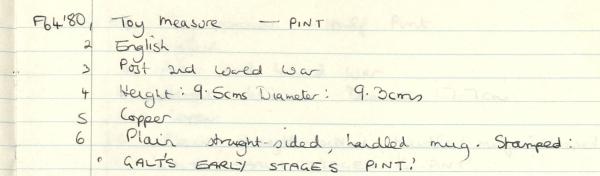 F64'80, Toy measure — PINT
2 English
3 Post 2nd World War
4 Height: 9.5cms Diameter: 9.3cms
5 Copper
6 Plain straight-sided, handled mug. Stamped:
' GALT'S EARLY STAGES PINT!